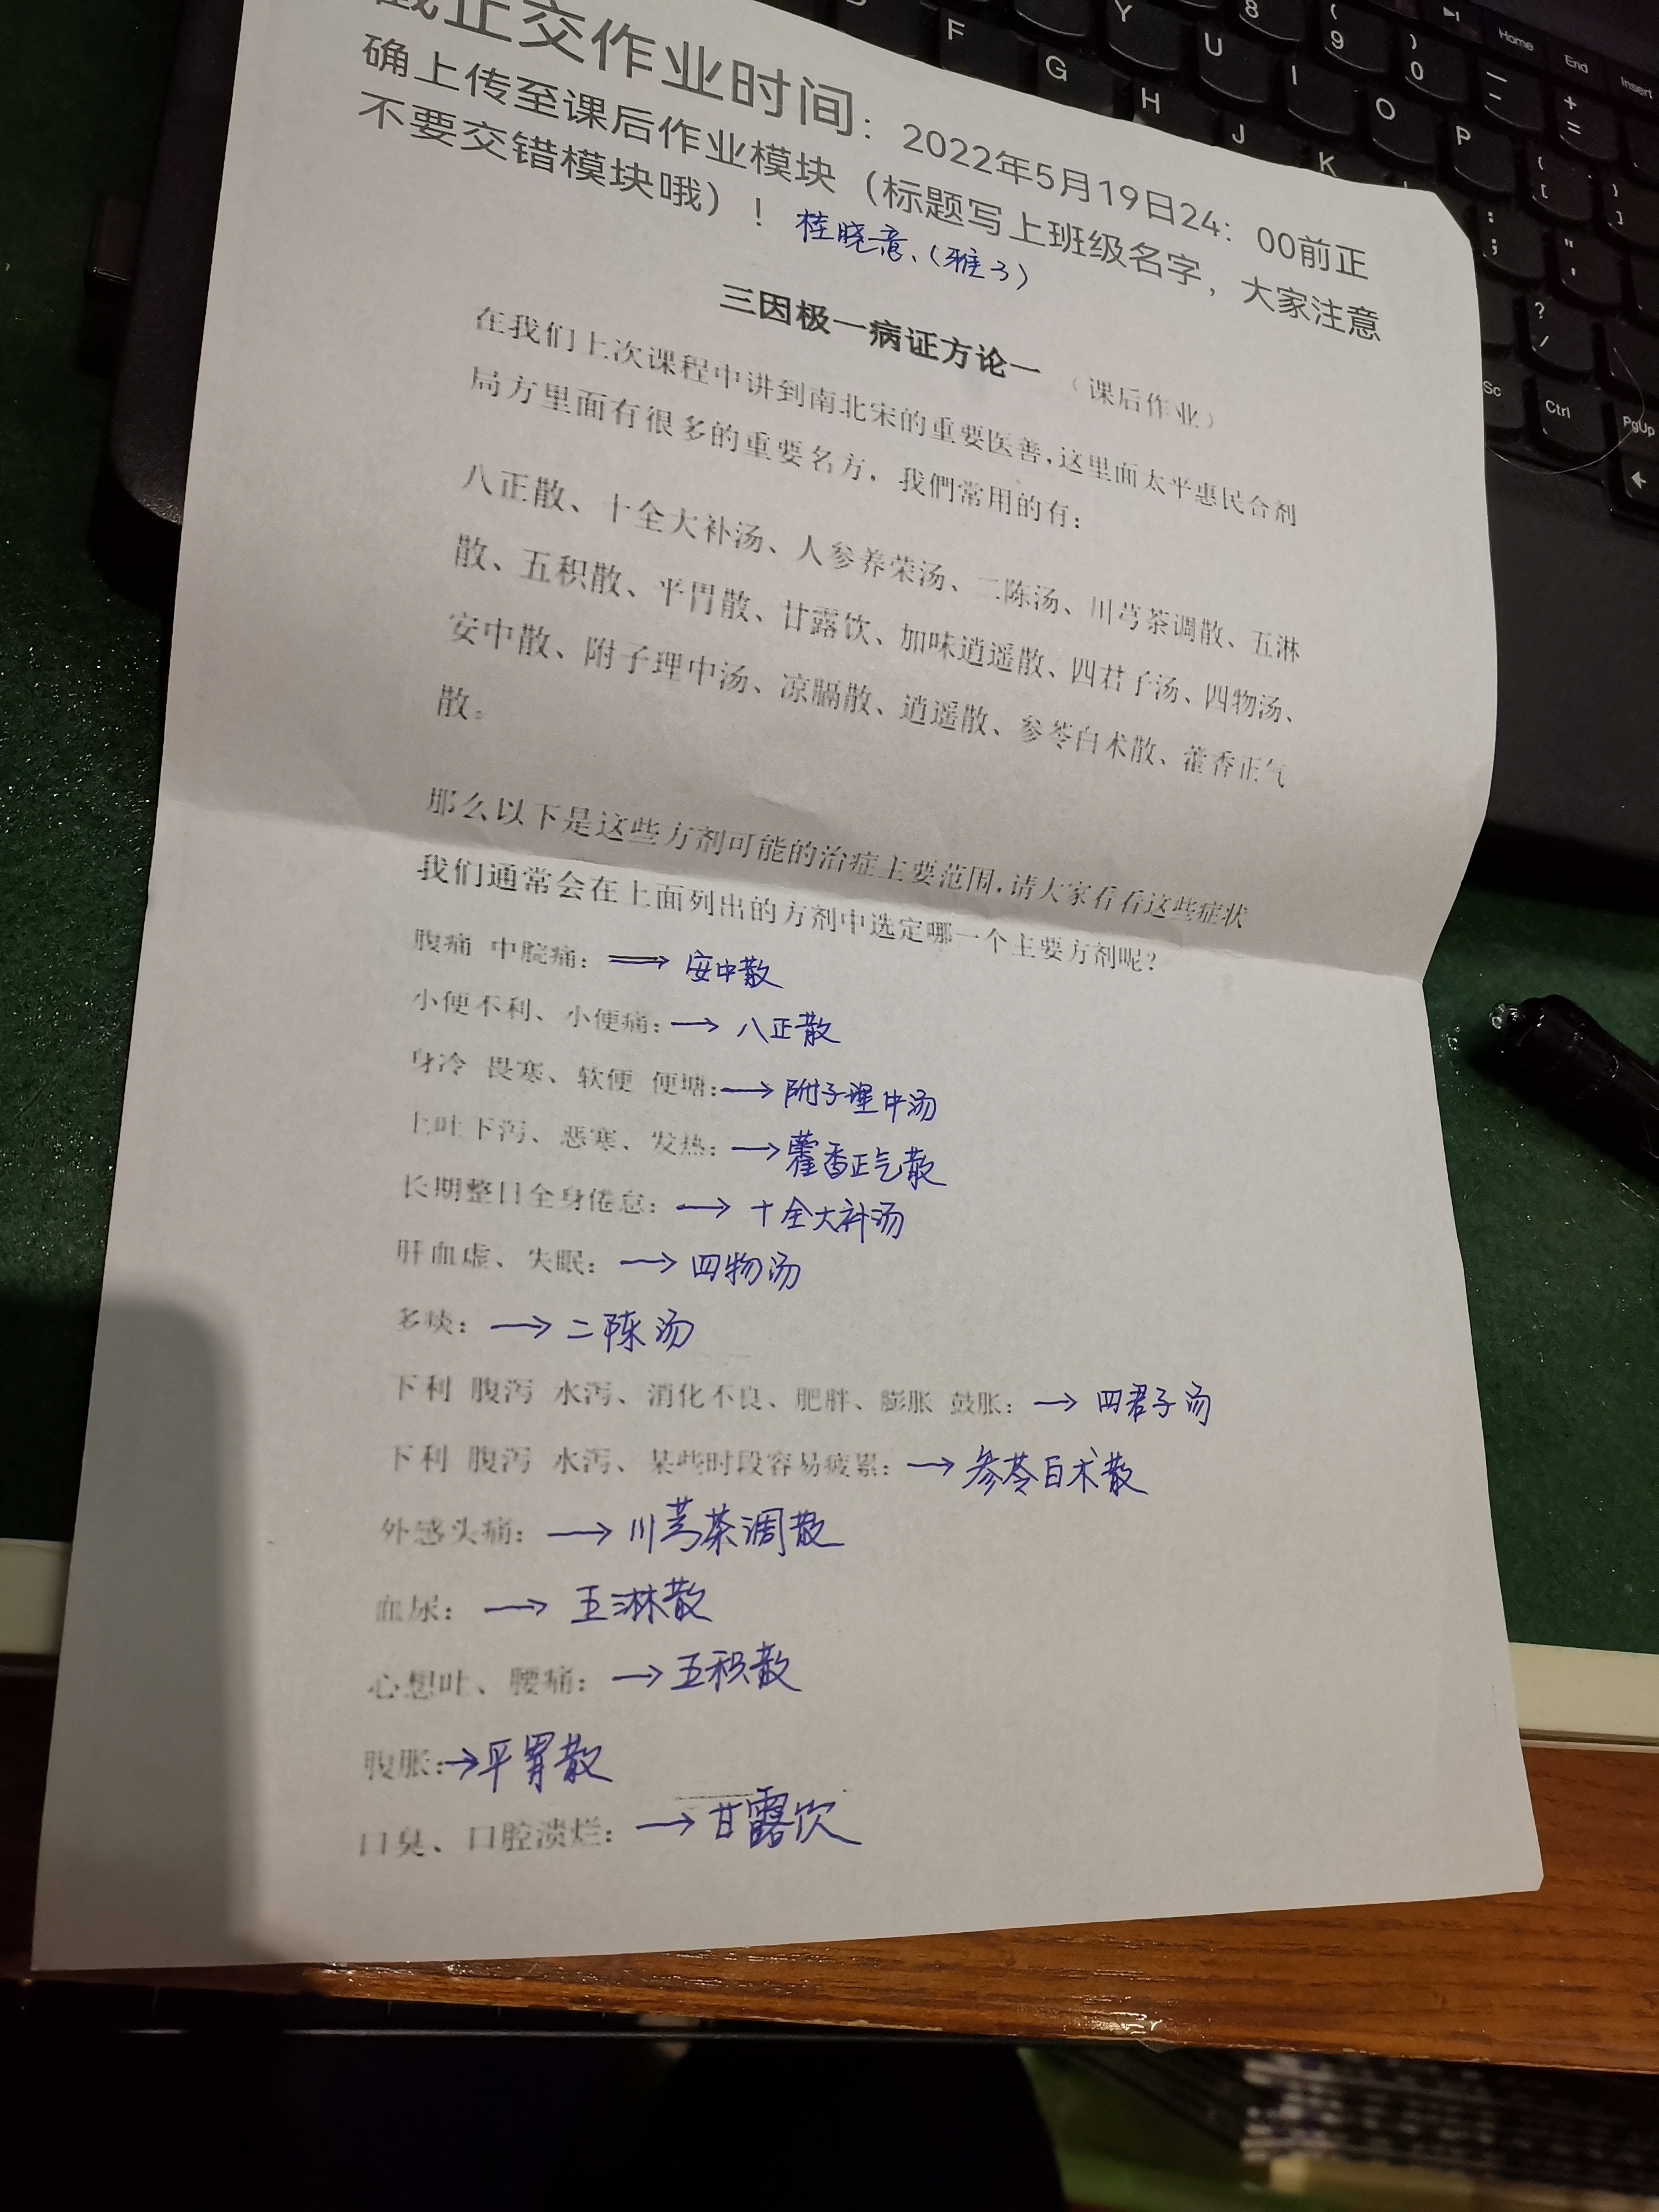 截止交作业时间：2022年5月19日24：00前正
确上传至课后作业模块（标题写上班级名字，大家注意
不要交错模块哦）！ 桂晓意、（雅3）
三因极一病证方论一 （课后作业）
在我们上次课程中讲到南北宋的重要医善，这里面太平惠民合剂
局方里面有很多的重要名方，我們常用的有：
八正散、十全大补汤、人参养荣汤、二陈汤、川芎茶调散、五淋
散、五积散、平胃散、甘露饮、加味逍遥散、四君子汤、四物汤、
安中散、附子理中汤、凉膈散、逍遥散、参苓白术散、藿香正气
散。
那么以下是这些方剂可能的治症主要范围，请大家看看这些症状
我们通常会在上面列出的方剂中选定哪一个主要方剂呢？
腹痛 中脘痛：⟹ 安中散
小便不利、小便痛：→ 八正散
身冷 畏寒、软便 便塘：→ 附子理中汤
上吐下泻、恶寒、发热：→ 藿香正气散
长期整日全身倦怠：→ 十全大补汤
肝血虚、失眠：→ 四物汤
多痰：→ 二陈汤
下利 腹泻 水泻、消化不良、肥胖、膨胀 鼓胀：→ 四君子汤
下利 腹泻 水泻、某些时段容易疲累：→ 参苓白术散
外感头痛：→ 川芎茶调散
血尿：→ 五淋散
心想吐、腰痛：→ 五积散
腹胀：→ 平胃散
口臭、口腔溃烂：→ 甘露饮
Y
8
(
9
)
0
Home
End
Insert
F
G
U
I
O
P
H
J
K
Sc
Ctrl
PgUp